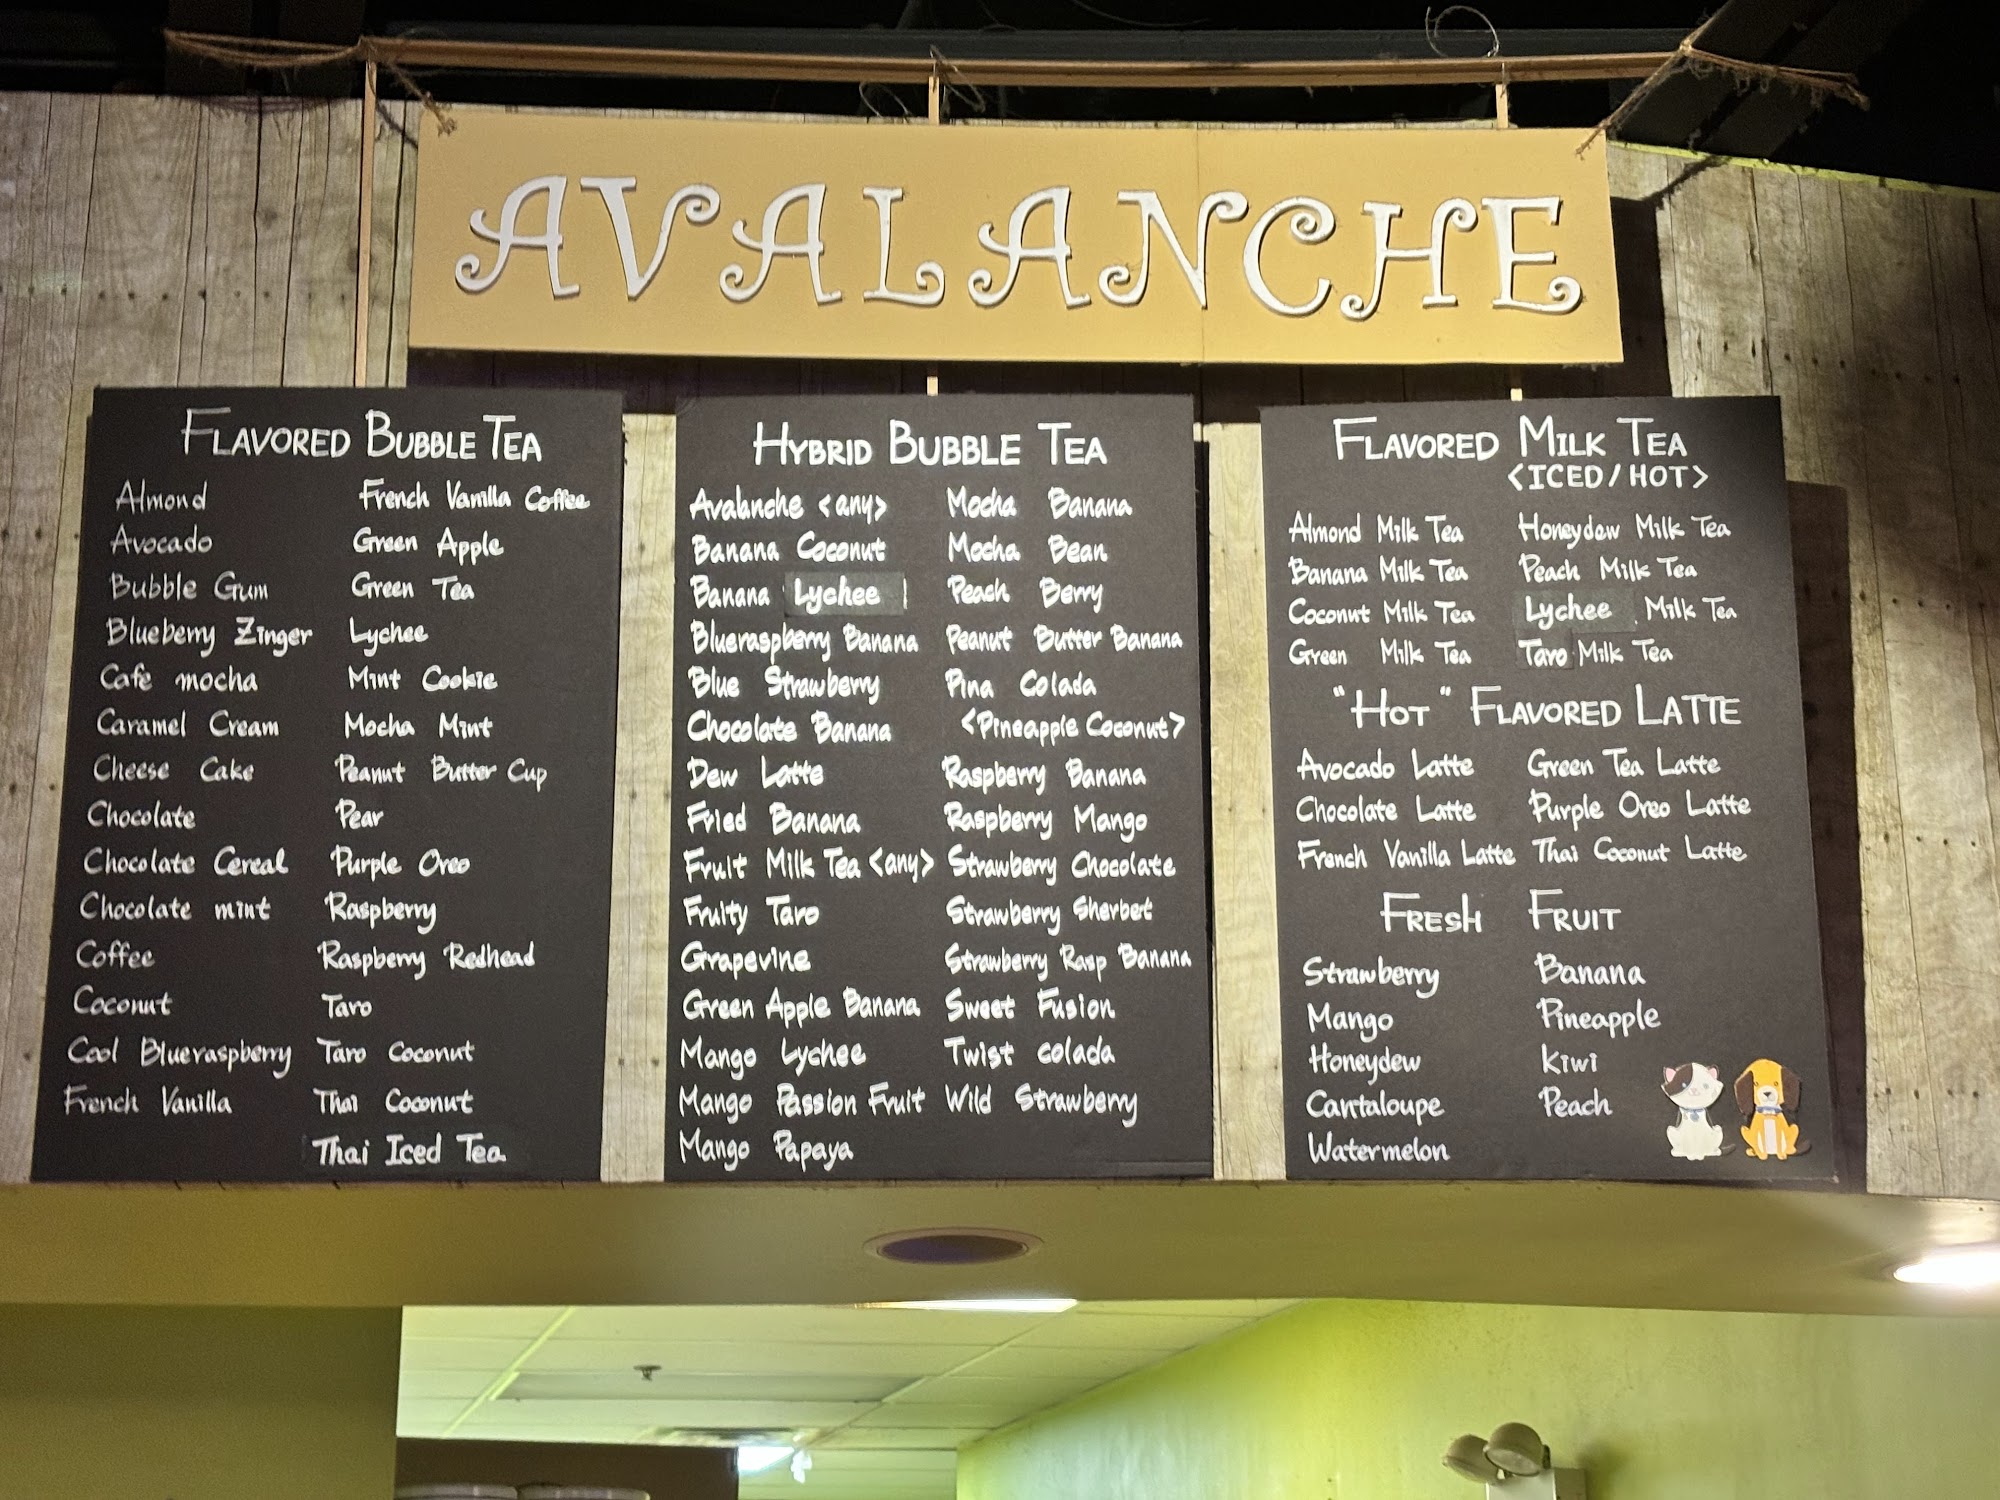 AVALANCHE
FLAVORED BUBBLE TEA
Almond
Avocado
Bubble Gum
Blueberry Zinger
Cafe mocha
Caramel Cream
Cheese Cake
Chocolate
Chocolate Cereal
Chocolate mint
Coffee
Coconut
Cool Blueraspberry
French Vanilla
French Vanilla Coffee
Green Apple
Green Tea
Lychee
Mint Cookie
Mocha Mint
Peanut Butter Cup
Pear
Purple Oreo
Raspberry
Raspberry Redhead
Taro
Taro Coconut
Thai Coconut
Thai Iced Tea
HYBRID BUBBLE TEA
Avalanche <any>
Banana Coconut
Banana Lychee
Blueraspberry Banana
Blue Strawberry
Chocolate Banana
Dew Latte
Fried Banana
Fruit Milk Tea <any>
Fruity Taro
Grapevine
Green Apple Banana
Mango Lychee
Mango Passion Fruit
Mango Papaya
Mocha Banana
Mocha Bean
Peach Berry
Peanut Butter Banana
Pina Colada
<Pineapple Coconut>
Raspberry Banana
Raspberry Mango
Strawberry Chocolate
Strawberry Sherbet
Strawberry Rasp Banana
Sweet Fusion
Twist colada
Wild Strawberry
FLAVORED MILK TEA
<ICED/HOT>
Almond Milk Tea
Banana Milk Tea
Coconut Milk Tea
Green Milk Tea
Honeydew Milk Tea
Peach Milk Tea
Lychee Milk Tea
Taro Milk Tea
"HOT" FLAVORED LATTE
Avocado Latte
Chocolate Latte
French Vanilla Latte
Green Tea Latte
Purple Oreo Latte
Thai Coconut Latte
FRESH FRUIT
Strawberry
Mango
Honeydew
Cantaloupe
Watermelon
Banana
Pineapple
Kiwi
Peach